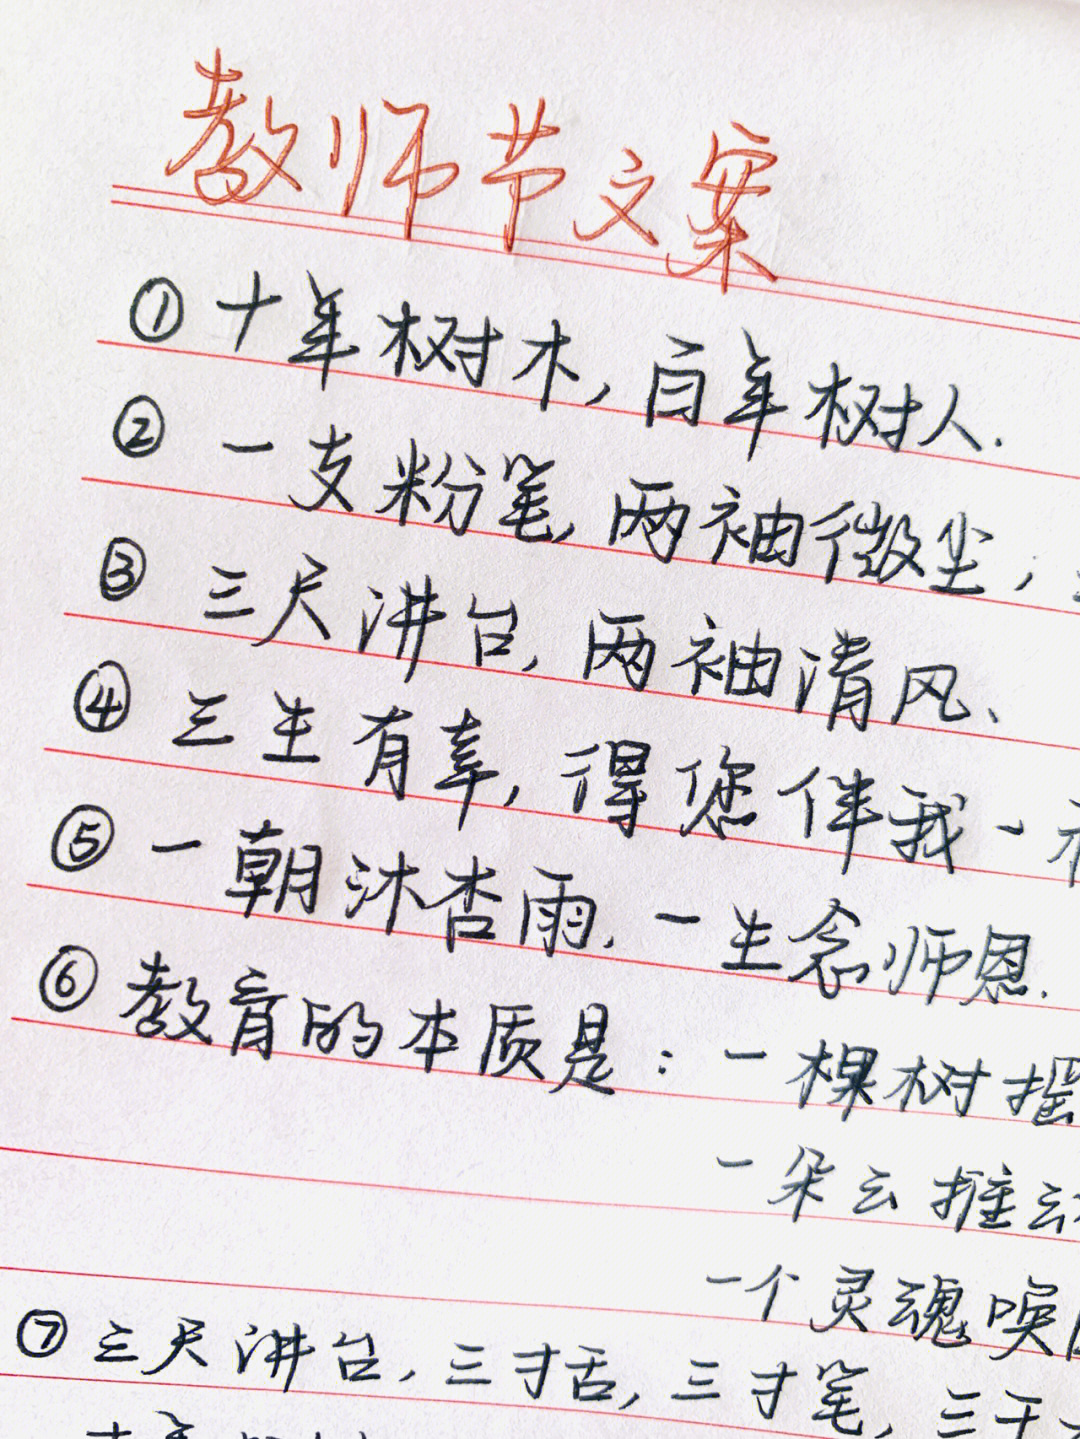 教师节文案
① 十年树木，百年树人.
② 一支粉笔，两袖微尘；
③ 三尺讲台，两袖清风、
④ 三生有幸，得您伴我一
⑤ 一朝沐杏雨.一生念师恩.
⑥ 教育的本质是：一棵树摇
一朵云推动
一个灵魂唤
⑦ 三尺讲台，三寸舌，三寸笔，三千